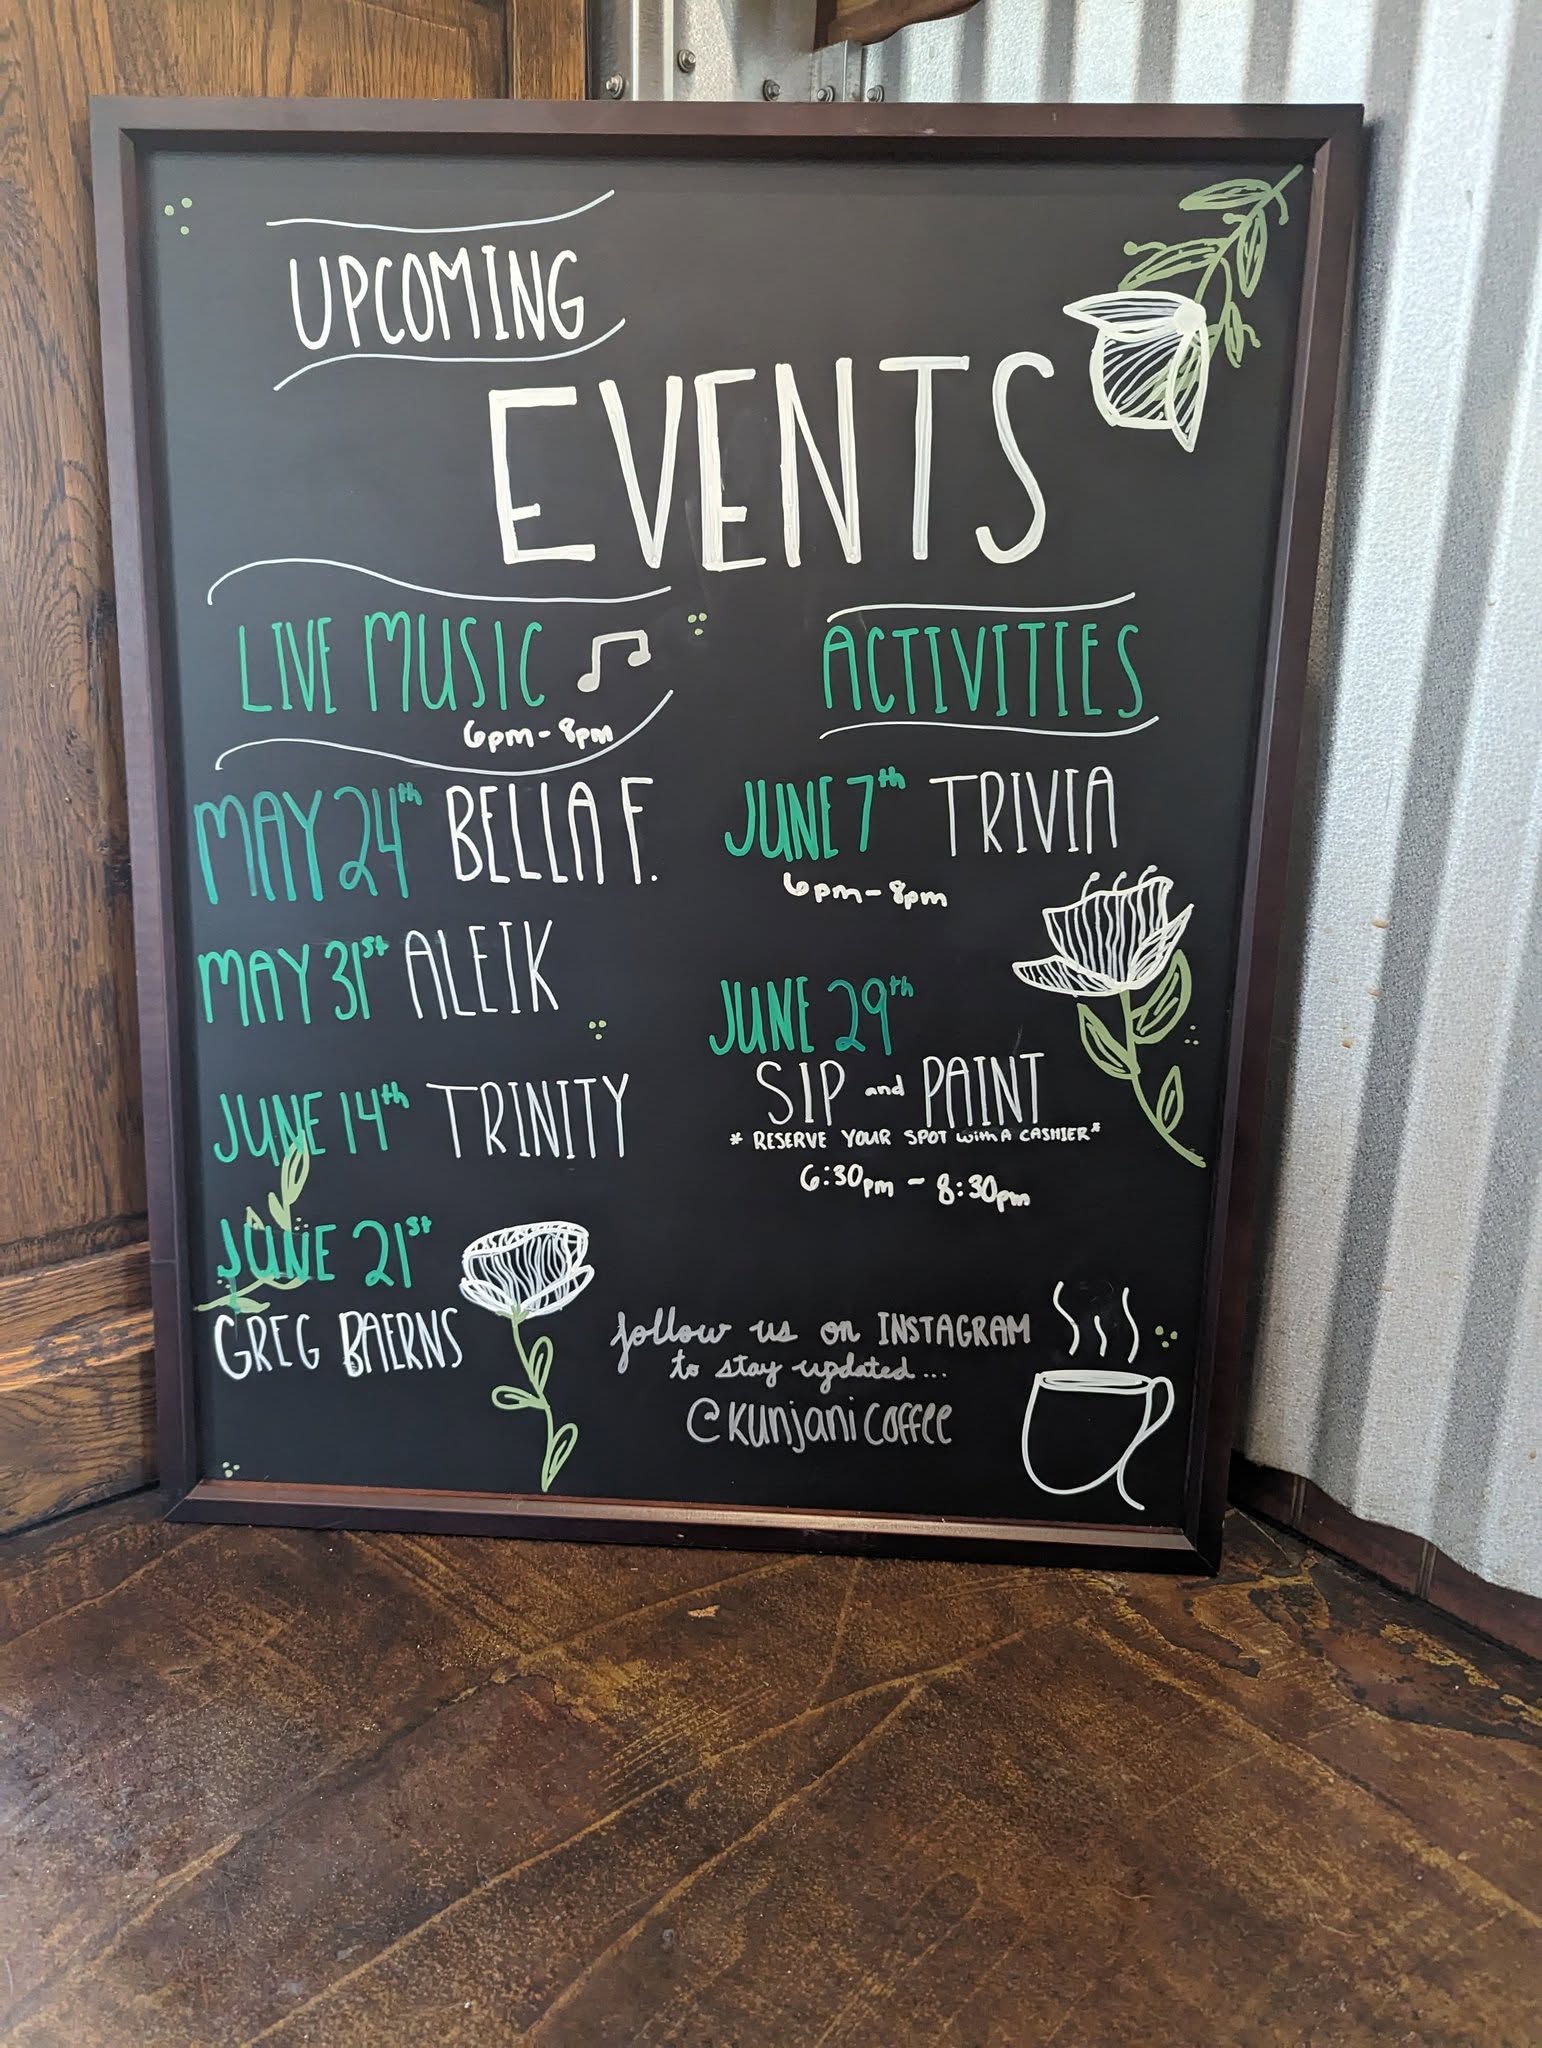 UPCOMING
EVENTS
LIVE MUSIC
6pm - 8pm
MAY 24th BELLA F.
MAY 31st ALEIK
JUNE 14th TRINITY
JUNE 21st
GREG BAERNS
ACTIVITIES
JUNE 7th TRIVIA
6pm - 8pm
JUNE 29th
SIP and PAINT
* RESERVE YOUR SPOT with A CASHIER*
6:30pm - 8:30pm
follow us on INSTAGRAM
to stay updated...
@kunjanicoffee